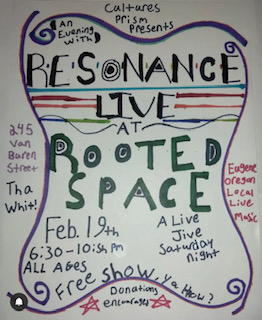 Cultures
Prism
Presents
An
Evening
With
RESONANCE
LIVE
AT
ROOTED
SPACE
245
Van
Buren
Street
Tha
Whit!
Eugene
Oregon
Local
Live
Music
Feb. 19th
6:30-10:15pm
ALL AGES
A Live
Jive
Saturday
night
Free Show. Ya Know?
Donations
encouraged